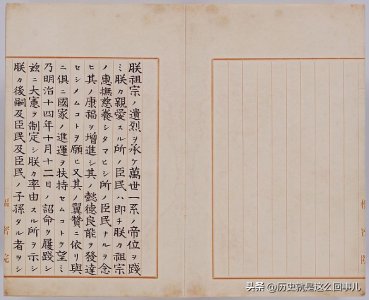 朕祖宗ノ遺烈ヲ承ケ萬世一系ノ帝位ヲ踐
ミ朕カ親愛スル所ノ臣民ハ即チ朕カ祖宗
ノ惠撫慈養シタマヒシ所ノ臣民ナルヲ念
ヒ其ノ康福ヲ增進シ其ノ懿德良能ヲ發達
セシメムコトヲ願ヒ又其ノ翼贊ニ依リ與
ニ俱ニ國家ノ進運ヲ扶持セムコトヲ望ミ
乃明治十四年十月十二日ノ詔命ヲ履踐シ
茲ニ大憲ヲ制定シ朕カ率由スル所ヲ示シ
朕カ後嗣及臣民及臣民ノ子孫タル者ヲシ
头条 @历史就是这么回事儿